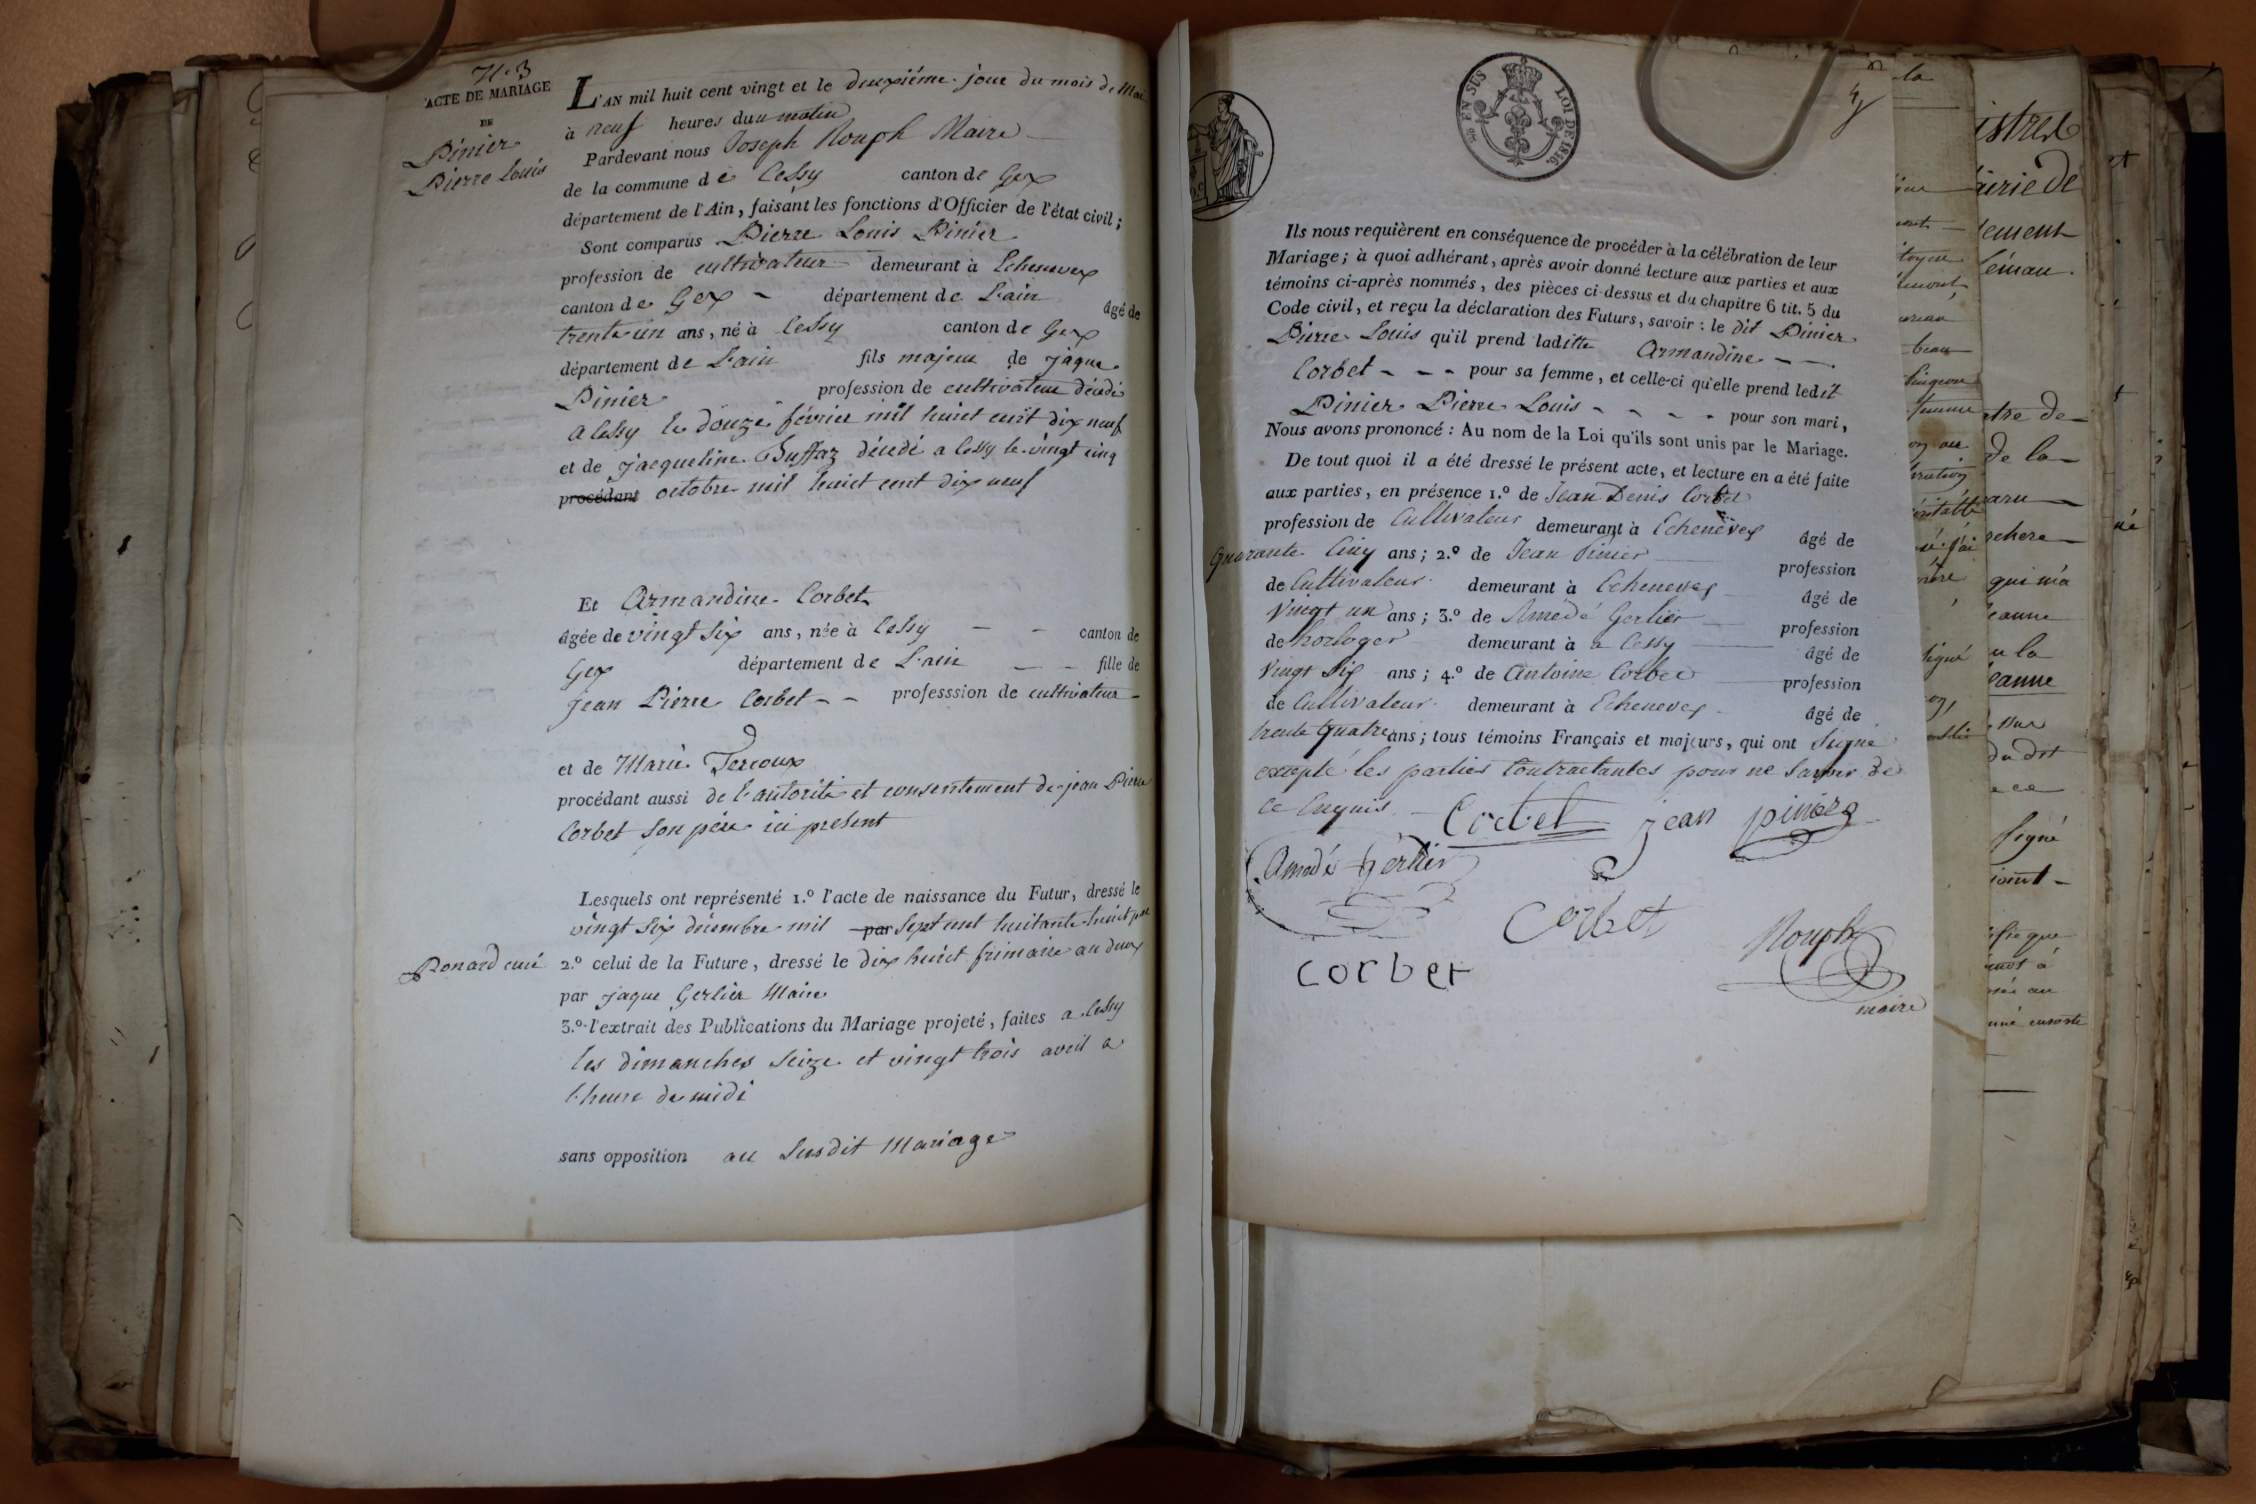 N.° 3
ACTE DE MARIAGE
DE
Pinier
Pierre Louis
L'AN mil huit cent vingt et le deuxiéme jour du mois de Mai
à neuf heures du matin
Pardevant nous Joseph Rouph Maire
de la commune de Cessy canton de Gex
département de l'Ain, faisant les fonctions d'Officier de l'état civil;
Sont comparus Pierre Louis Pinier
profession de cultivateur demeurant à Echenevex
canton de Gex département de L'ain âgé de
trente un ans, né à Cessy canton de Gex
département de L'ain fils majeur de jaque
Pinier profession de cultivateur décédé
a Cessy le douze février mil huict cent dix neuf
et de jacqueline Buffaz décédé a Cessy le vingt cinq
procédant octobre mil huict cent dix neuf
Et Armandine Corbet
âgée de vingt six ans, née à Cessy canton de
Gex département de L'ain fille de
jean Pierre Corbet professsion de cultivateur
et de Marie Terroux
procédant aussi de l'autorité et consentement de jean Pierre
Corbet son père ici present
Lesquels ont représenté 1.° l'acte de naissance du Futur, dressé le
vingt six décembre mil par sept cent huitante huict par
Ronard curé
2.° celui de la Future, dressé le dix huict frimaire an deux
par jaque Gerlier Maire
3.° l'extrait des Publications du Mariage projeté, faites a Cessy
les dimanches seize et vingt trois avril a
l'heure de midi
sans opposition au susdit Mariage
EN SUS LOI DE 1816.
4
Ils nous requièrent en conséquence de procéder à la célébration de leur
Mariage; à quoi adhérant, après avoir donné lecture aux parties et aux
témoins ci-après nommés, des pièces ci-dessus et du chapitre 6 tit. 5 du
Code civil, et reçu la déclaration des Futurs, savoir: le dit Pinier
Pierre Louis qu'il prend laditte Armandine
Corbet pour sa femme, et celle-ci qu'elle prend ledit
Pinier Pierre Louis pour son mari,
Nous avons prononcé: Au nom de la Loi qu'ils sont unis par le Mariage.
De tout quoi il a été dressé le présent acte, et lecture en a été faite
aux parties, en présence 1.° de Jean Denis Corbet
profession de Cultivateur demeurant à Echenevex âgé de
quarante Cinq ans; 2.° de Jean Pinier profession
de Cultivateur demeurant à Echenevex âgé de
Vingt un ans; 3.° de Amédé Gerlier profession
de horloger demeurant à a Cessy âgé de
Vingt Six ans; 4.° de Antoine Corbet profession
de Cultivateur demeurant à Echenevex âgé de
trente quatre ans; tous témoins Français et majeurs, qui ont signé
excepté les parties Contractantes pour ne savoir de
ce Enquis
Corbet jean pinier
Amedé Gerlier
Corbet
Rouph
corbet
maire